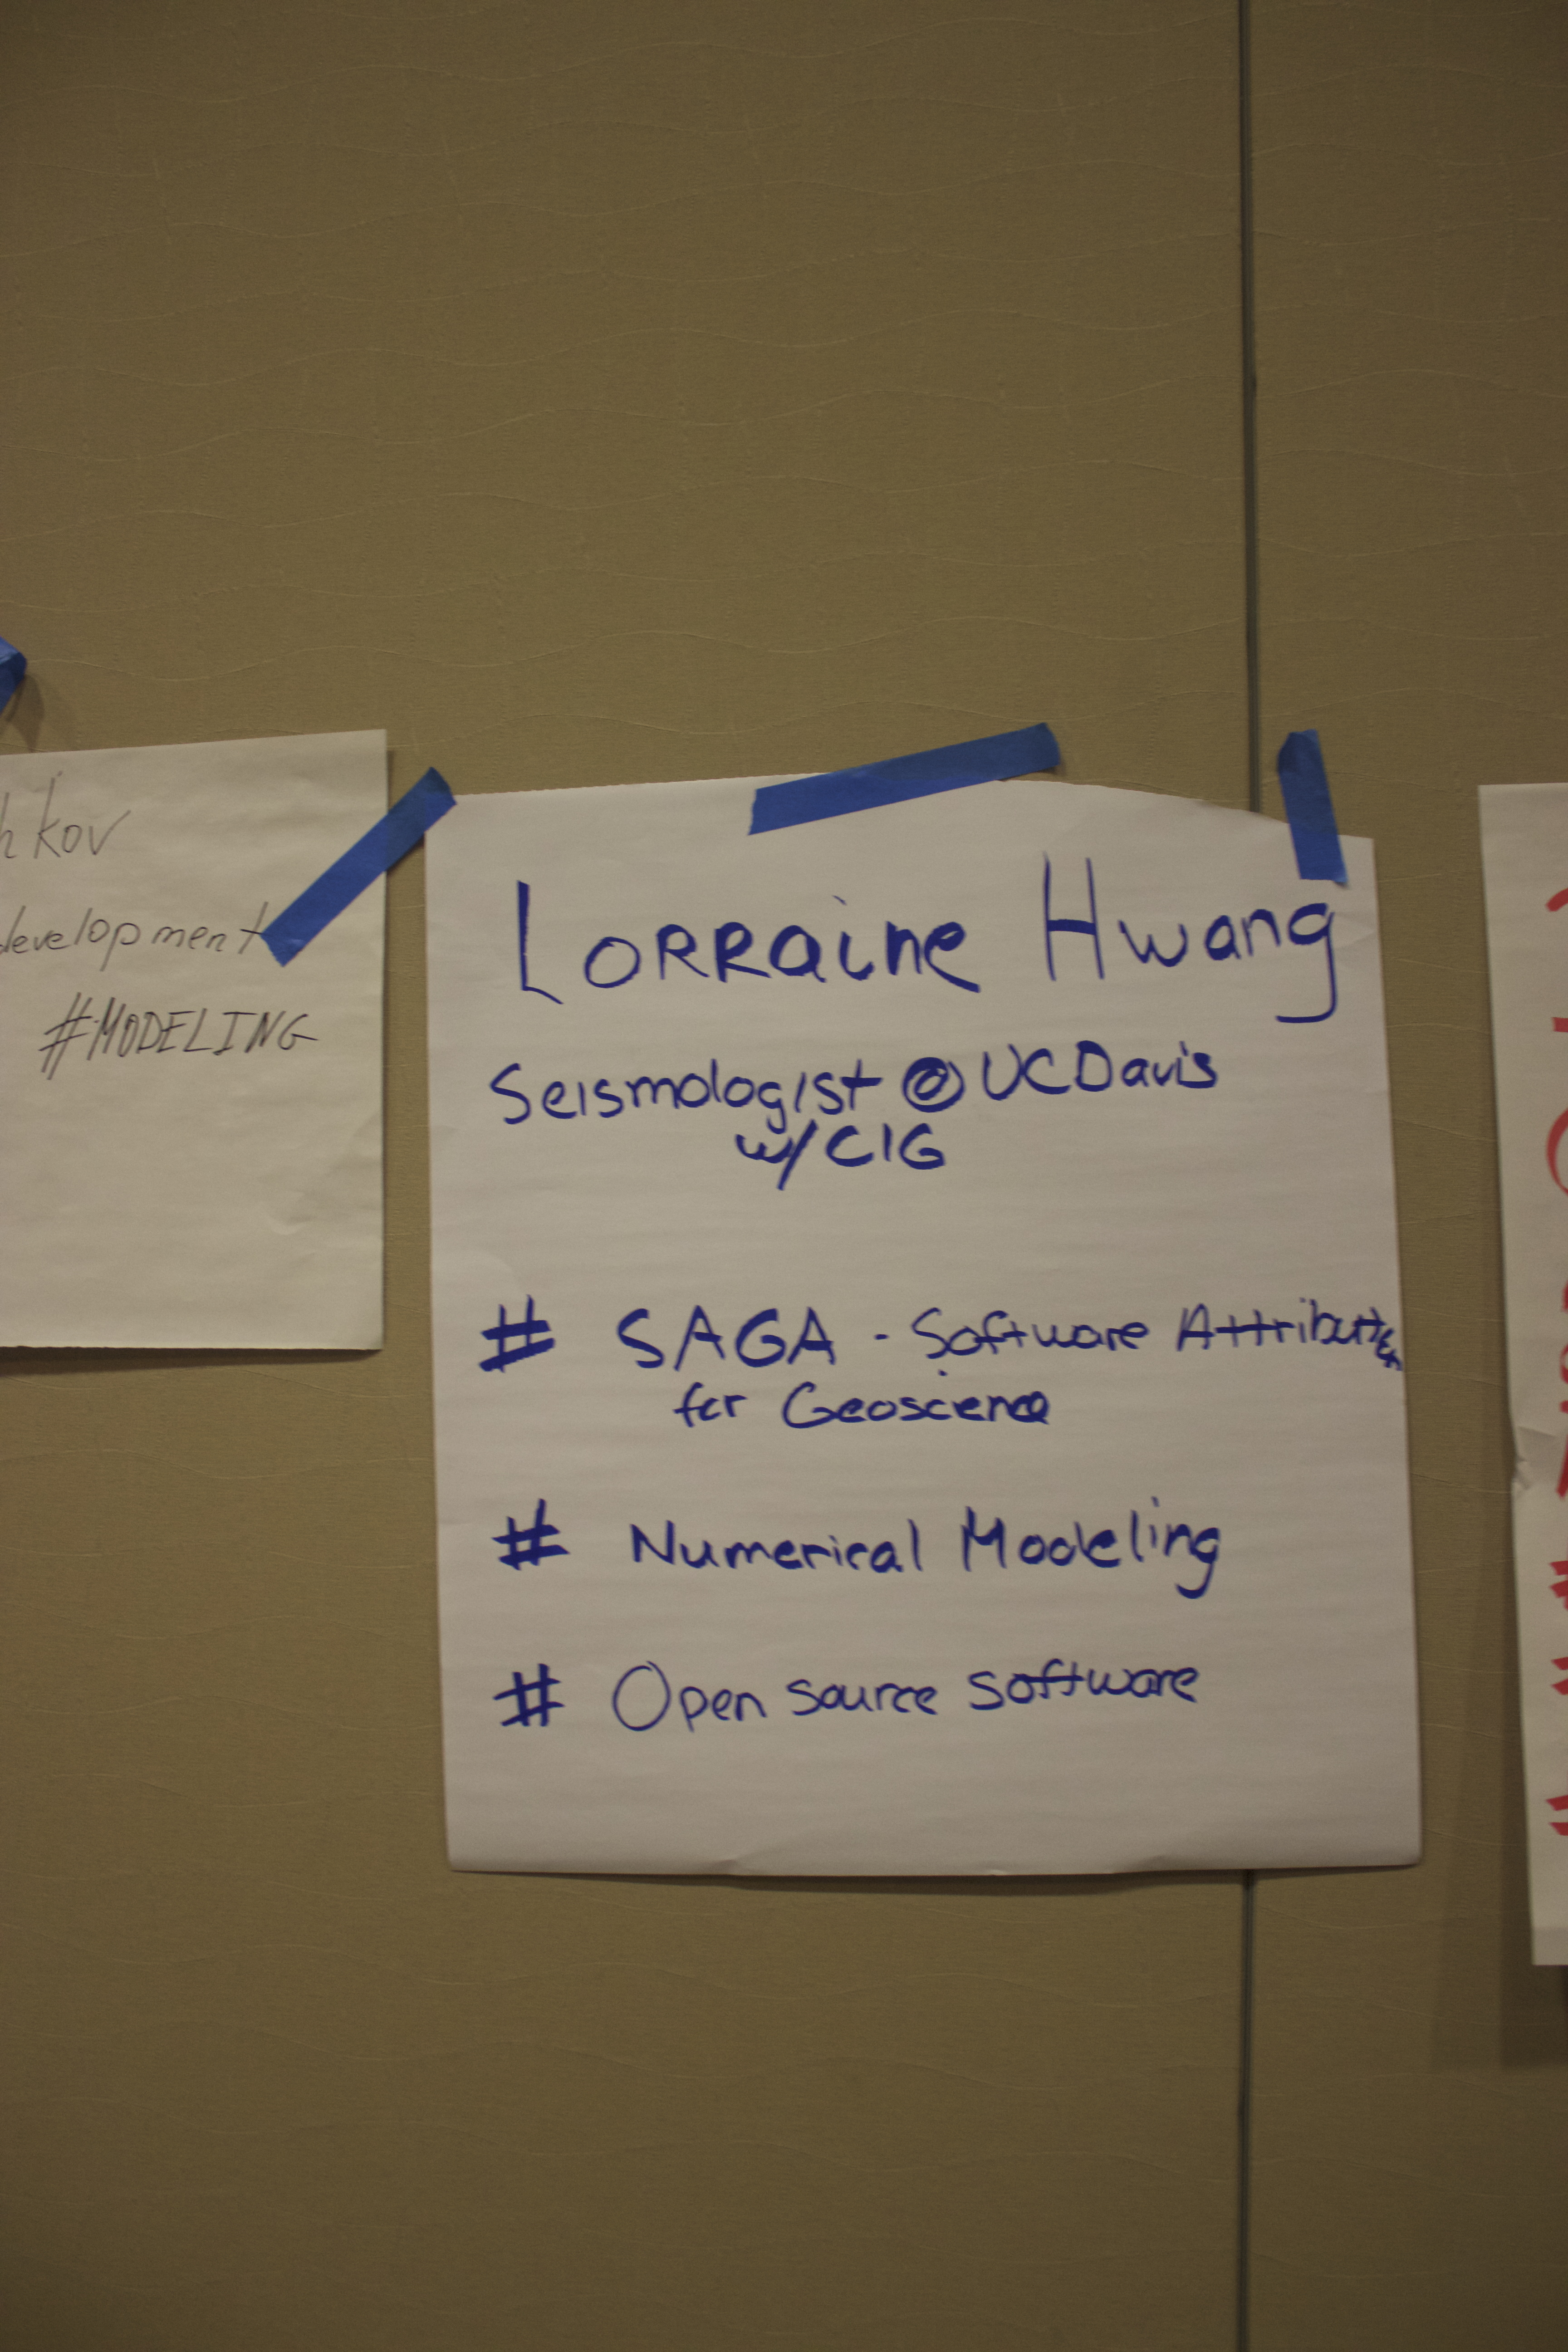 h kov
development
#MODELING
LORRaine Hwang
Seismologist @ UCDavis
w/ CIG
# SAGA - Software Attribution
for Geoscience
# Numerical Modeling
# Open source software